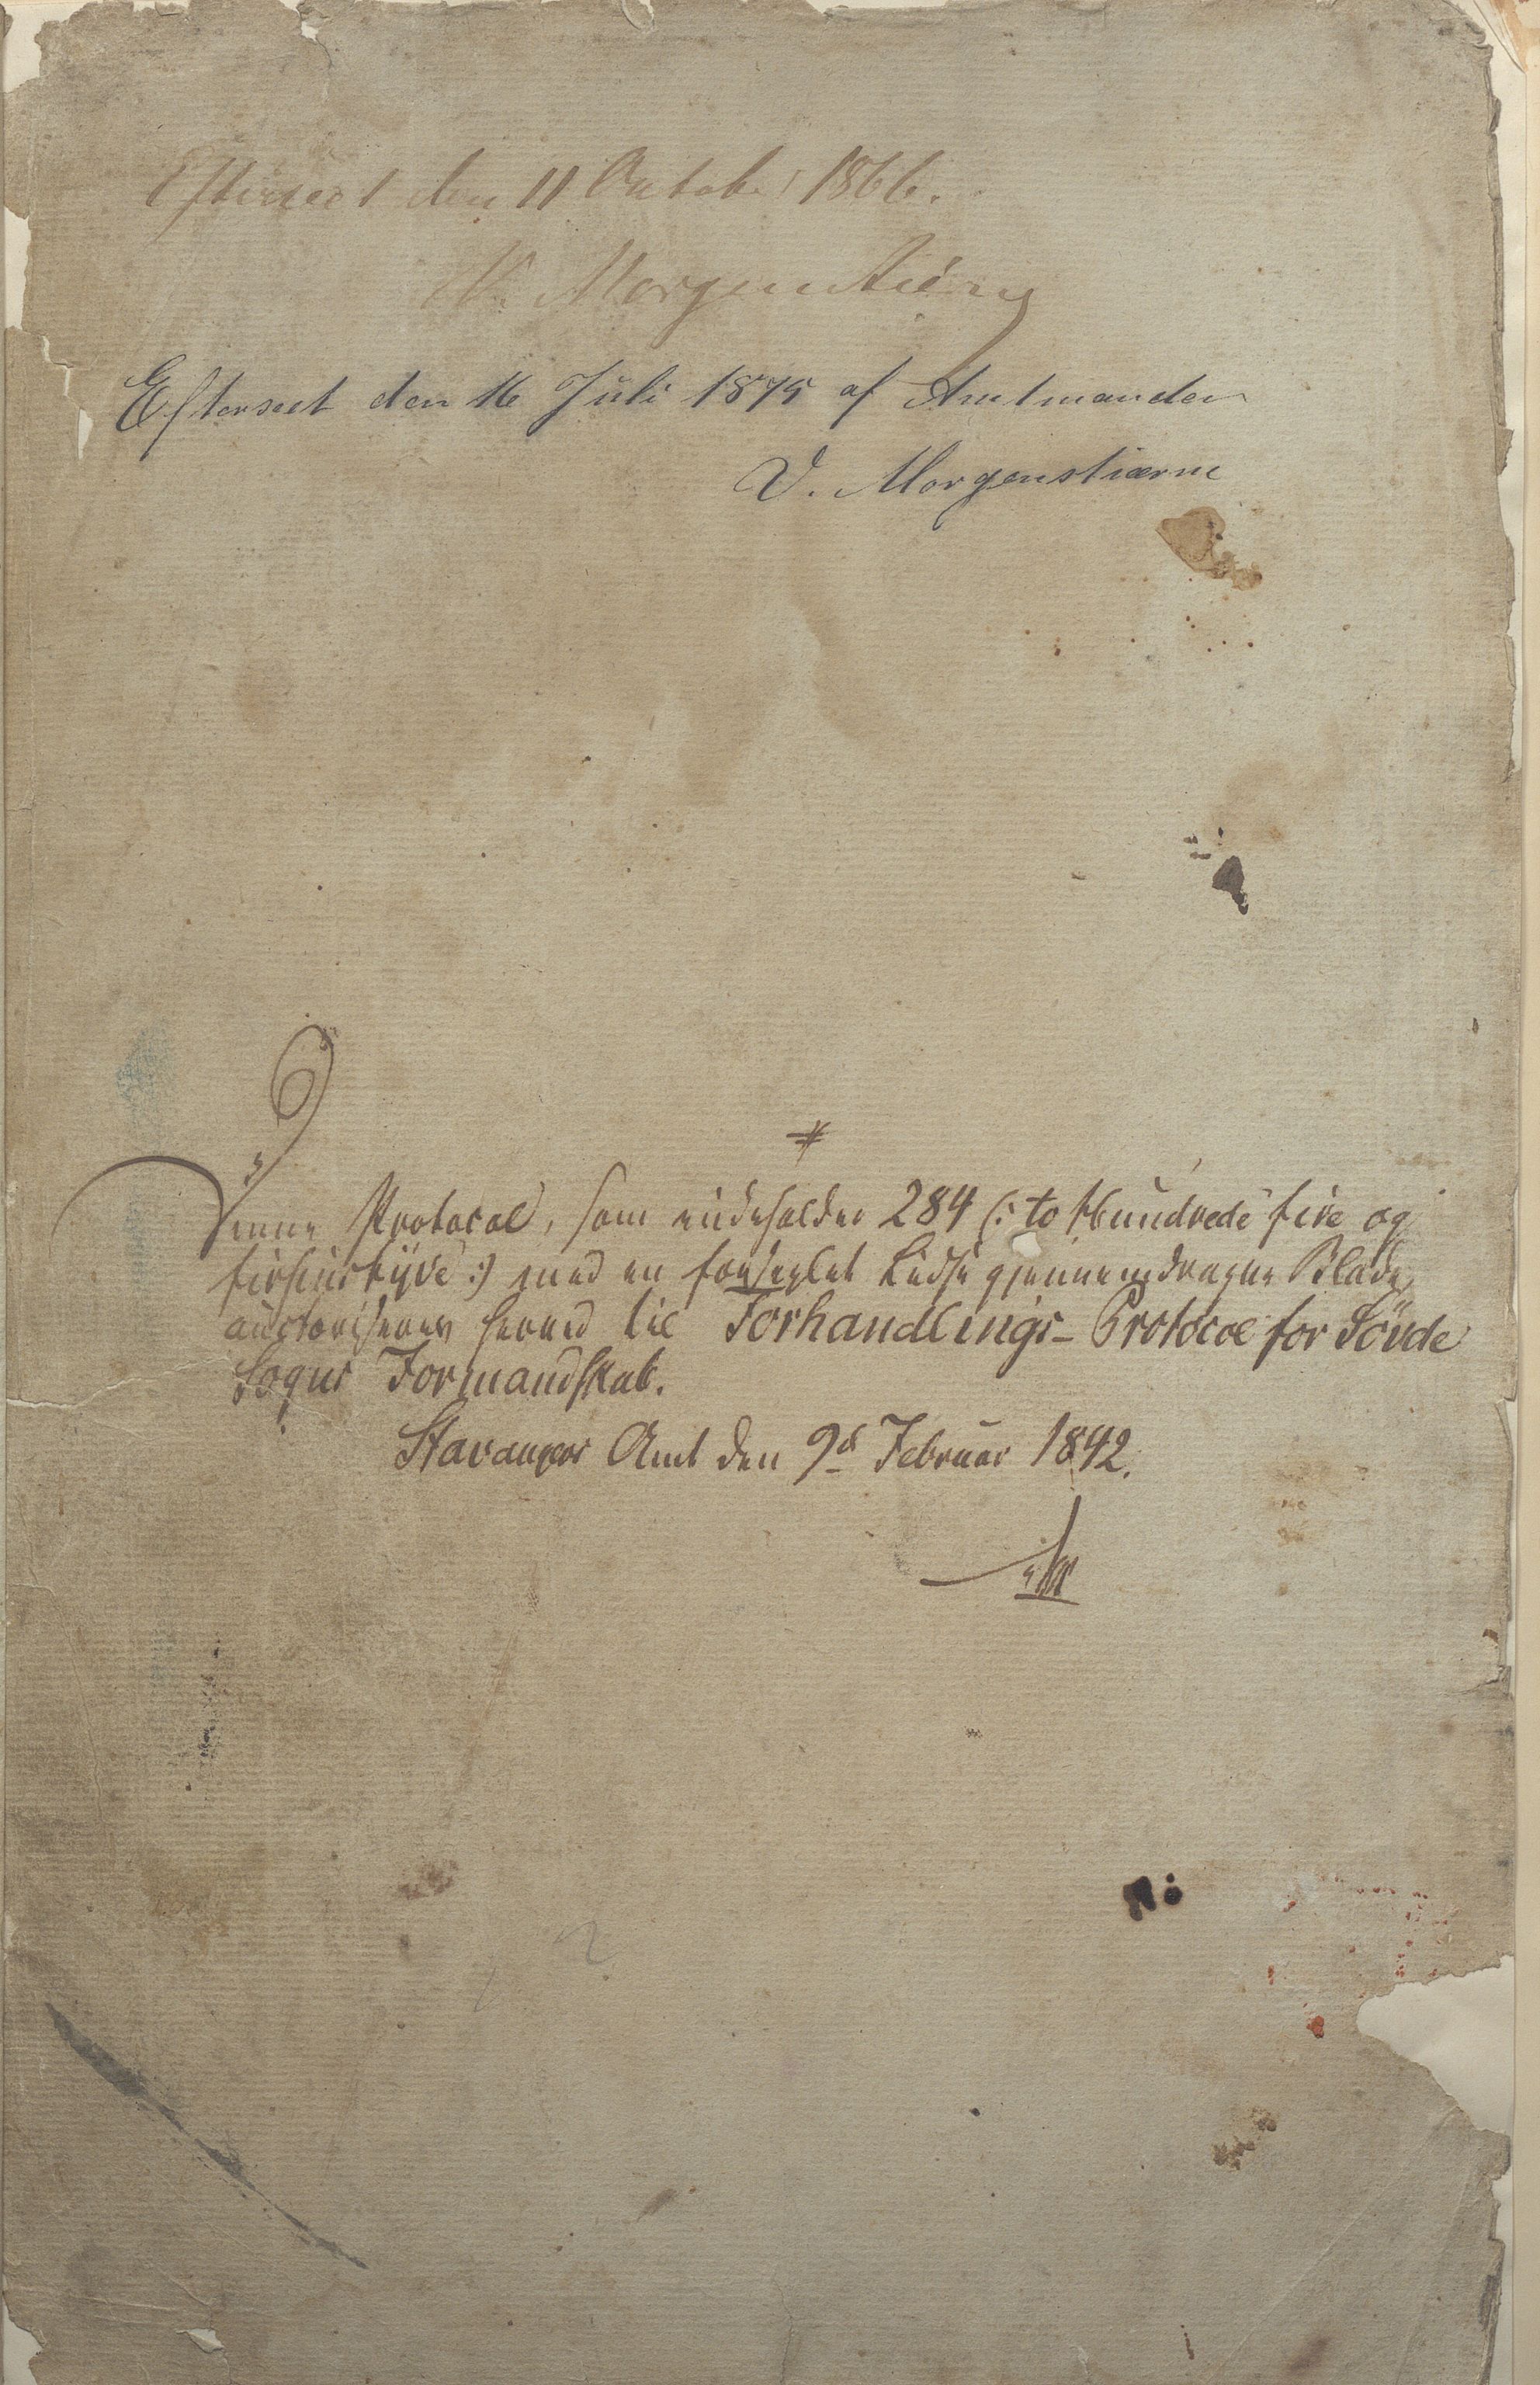 Efterseet den 11 October 1866.
V. Morgenstierne
Efterseet den 16 Juli 1875 af Amtmanden
V. Morgenstierne
Denne Protocol, som indeholder 284 (: to Hundrede fire og
firsinstyve :) med en forseglet Lidse gjennemdragne Blade,
auctoriseres herved til Forhandlings-Protocol for Sönde
Sogns Formandskab.
Stavanger Amt den 9d Februar 1842.